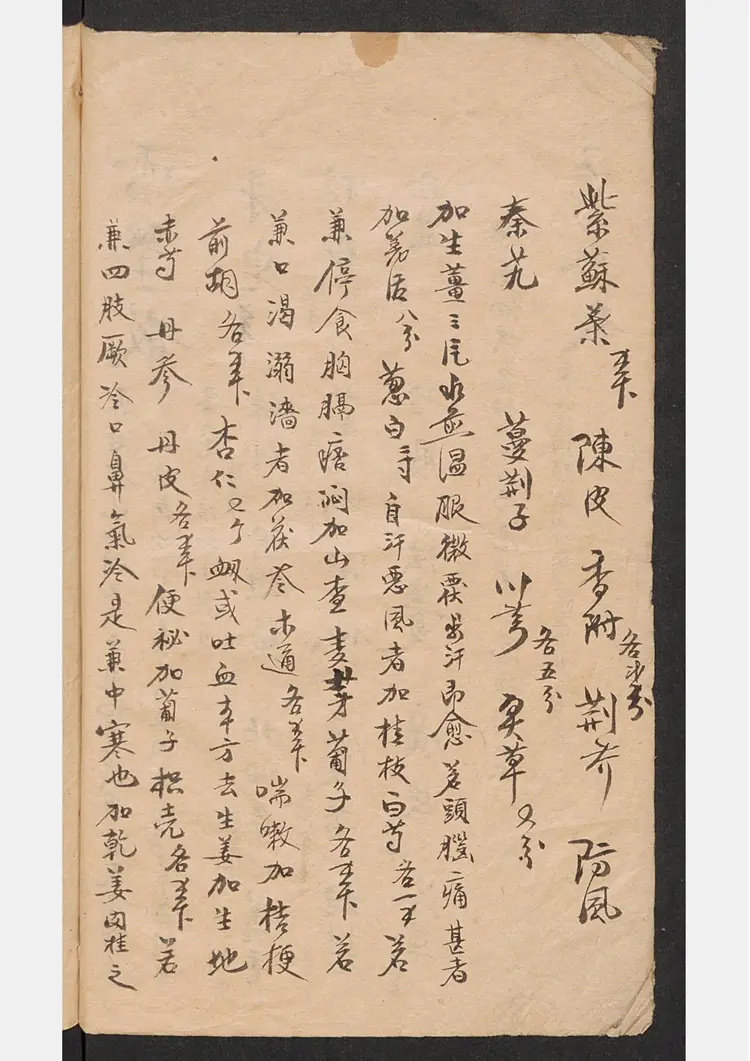 紫蘇葉 陳皮 香附各 荊芥 防風
秦艽 蔓荊子 川芎各五分 炙草七分
加生薑三片水煎溫服微覆出汗即愈若頭腦痛甚者
加羌活八分 蔥白 自汗惡風者加桂枝白芍各一 若
兼停食胸膈痞悶加山查麦芽蔔子各 若
兼口渴溺濇者加茯苓木通各 喘嗽加桔梗
前胡各 杏仁七个 衂或吐血本方去生姜加生地
赤芍 丹參 丹皮各 便秘加蔔子枳壳各 若
兼四肢厥冷口鼻氣冷是兼中寒也加乾姜肉桂之